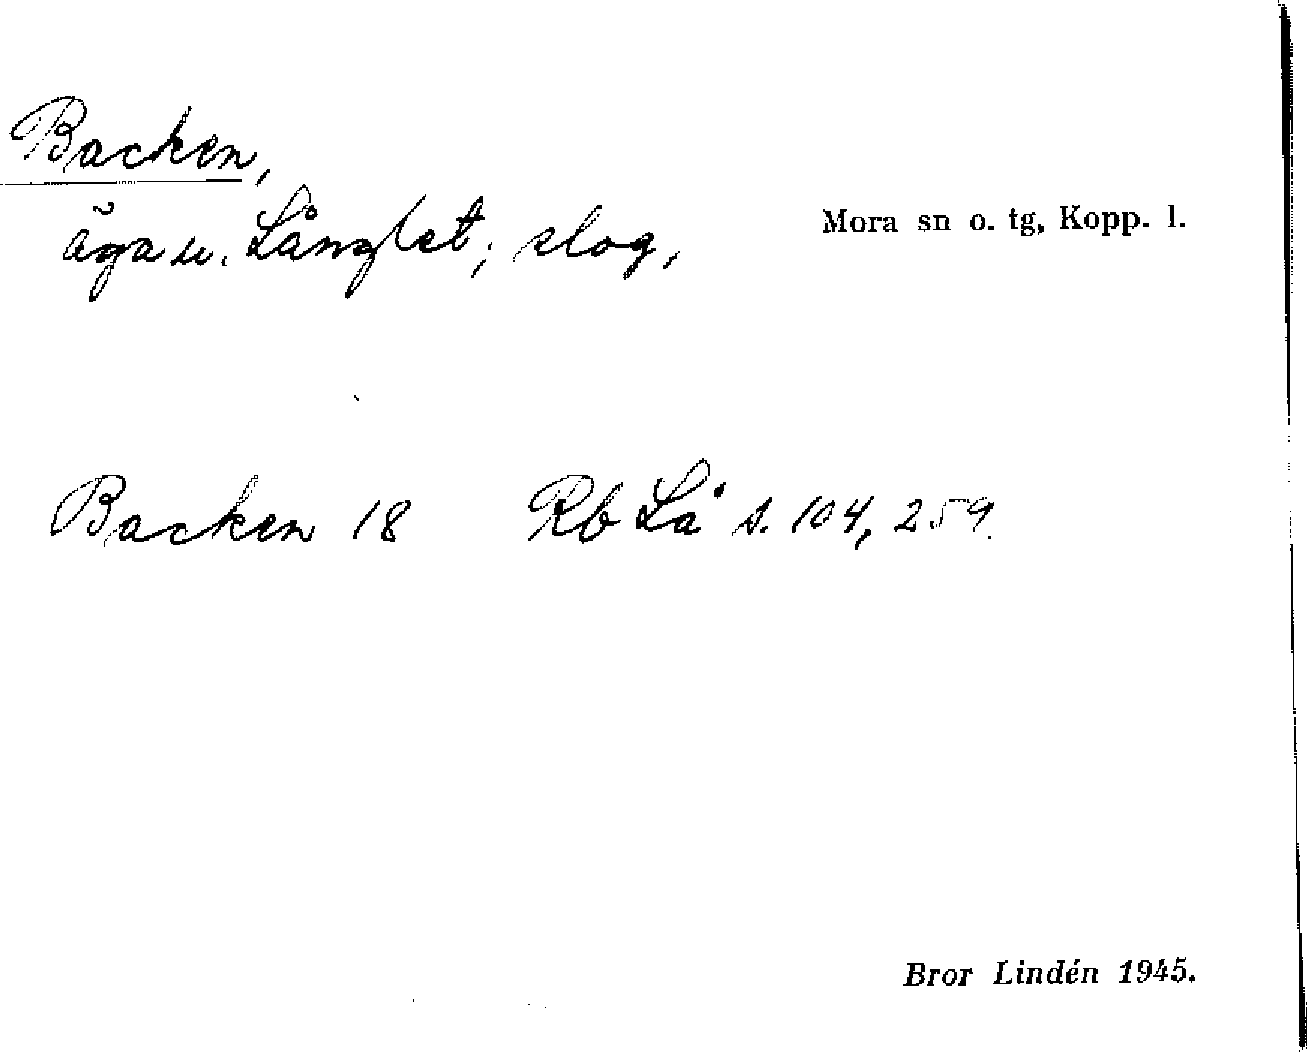 Backen,
äga u. Långlet; slog,
Mora sn o. tg, Kopp. l.
Backen 18 Rb Lå s. 104, 259.
Bror Lindén 1945.